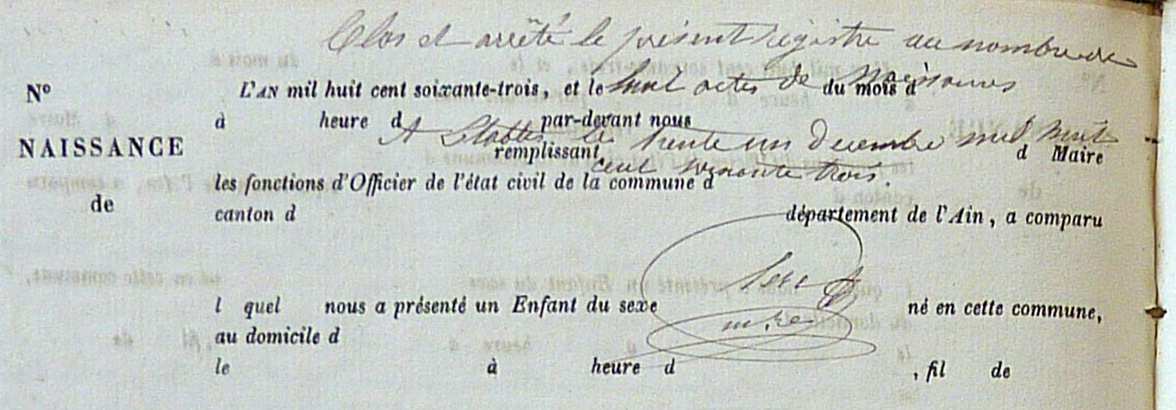 Clos et arrêté le présent régistre au nombre de
huit actes de Naissances
N° L'AN mil huit cent soixante-trois, et le du mois d
à heure d par-devant nous
A le trente un Decembre mil huit
NAISSANCE remplissant d Maire
cent soixante trois.
les fonctions d'Officier de l'état civil de la commune d
de canton d département de l'Ain, a comparu
l quel nous a présenté un Enfant du sexe né en cette commune,
au domicile d
le à heure d , fil de